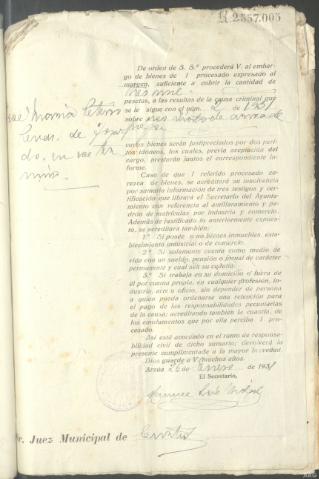 R 2357.005
De orden de S. S.ª procederá V. al embar-
go de bienes de l procesado expresado al
margen, suficiente a cubrir la cantidad de
tres mil
pesetas, a las resultas de la causa criminal que
se le sigue con el núm. 2 1931
sobre
cuyos bienes serán justipreciados por dos peri-
tos idóneos, los cuales, previa aceptación del
cargo, prestarán juntos el correspondiente in-
forme.
Caso de que l referido procesado ca-
rezca de bienes, se acreditará su insolvencia
por sumaria información de tres testigos y cer-
tificación que librará el Secretario del Ayunta-
miento con referencia al amillaramiento y
padrón de matrículas por industria y comercio.
Además de justificado lo anteriormente consig-
nado, se permitirá también:
1.º Si posee o no bienes inmuebles, esta-
blecimiento industrial o de comercio.
2.º Si solamente cuenta como medio de
vida con un sueldo, pensión o jornal de carácter
permanente y cuál sea su cuantía.
3.º Si trabaja en su domicilio o fuera de
él por cuenta propia, en cualquier profesión, in-
dustria, arte u oficio, sin depender de persona
a quien pueda ordenarse una retención para
el pago de las responsabilidades pecuniarias
de la causa; acreditando también la cuantía, de
los emolumentos que por ella perciba l pro-
cesado.
Así está acordado en el ramo de respon-
sabilidad civil de dicho sumario; devolverá la
presente cumplimentada a la mayor brevedad
Dios guarde a V. muchos años.
Arzúa 26 de Enero de 1931
El Secretario,
Sr. Juez Municipal de